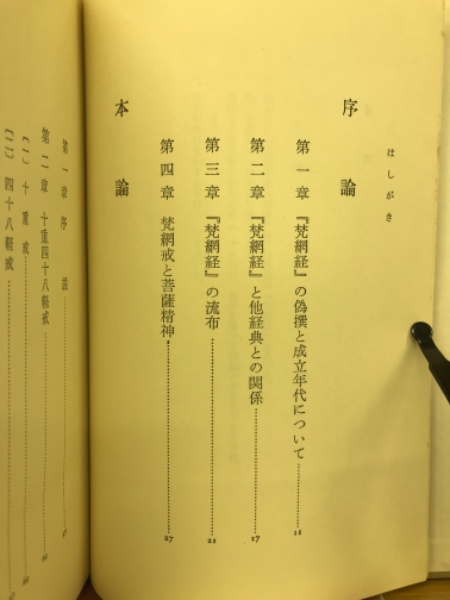 はしがき
序論
第一章 『梵網経』の偽撰と成立年代について
第二章 『梵網経』と他経典との関係 17
第三章 『梵網経』の流布 21
第四章 梵網戒と菩薩精神 27
本論
第一章 序論
第二章 十重四十八軽戒
(一) 十重戒
(二) 四十八軽戒